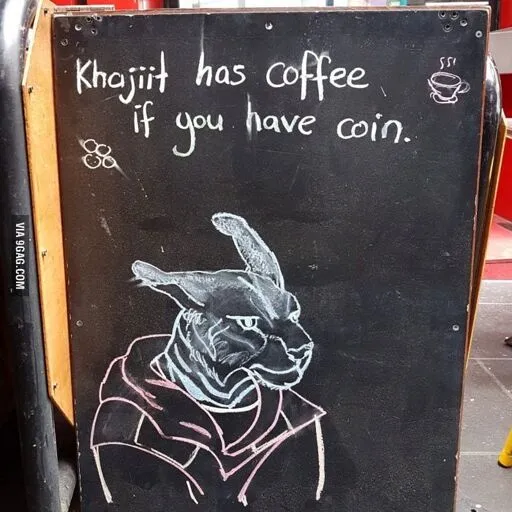 Khajiit has coffee
if you have coin.
VIA 9GAG.COM